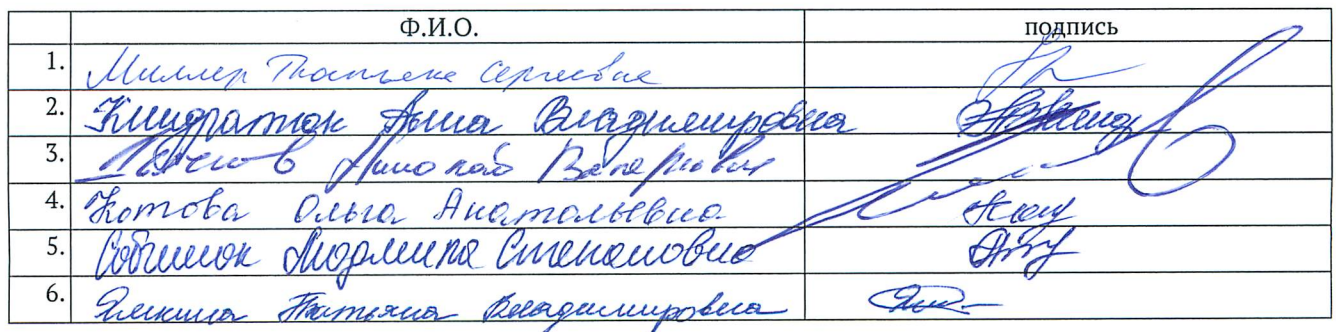 Ф.И.О. подпись
1. Миллер Татьяна Сергеевна
2. Анна Владимировна
3. Николай Валерьевич
4. Котова Ольга Анатольевна
5. Людмила Степановна
6. Татьяна Владимировна